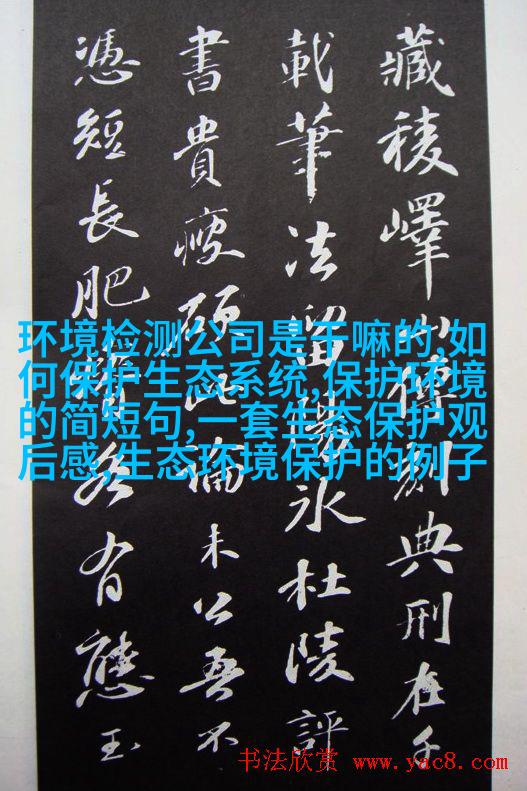 藏稜嶧山傳刻典刑在千
載筆法留陽冰杜陵評
書貴瘦硬此論未公吾不
憑短長肥瘠各有態玉
环境检测公司是干嘛的,如
何保护生态系统,保护环境
的简短句,一套生态保护观
后感,生态环境保护的例子
书法欣赏 www.yac8.com